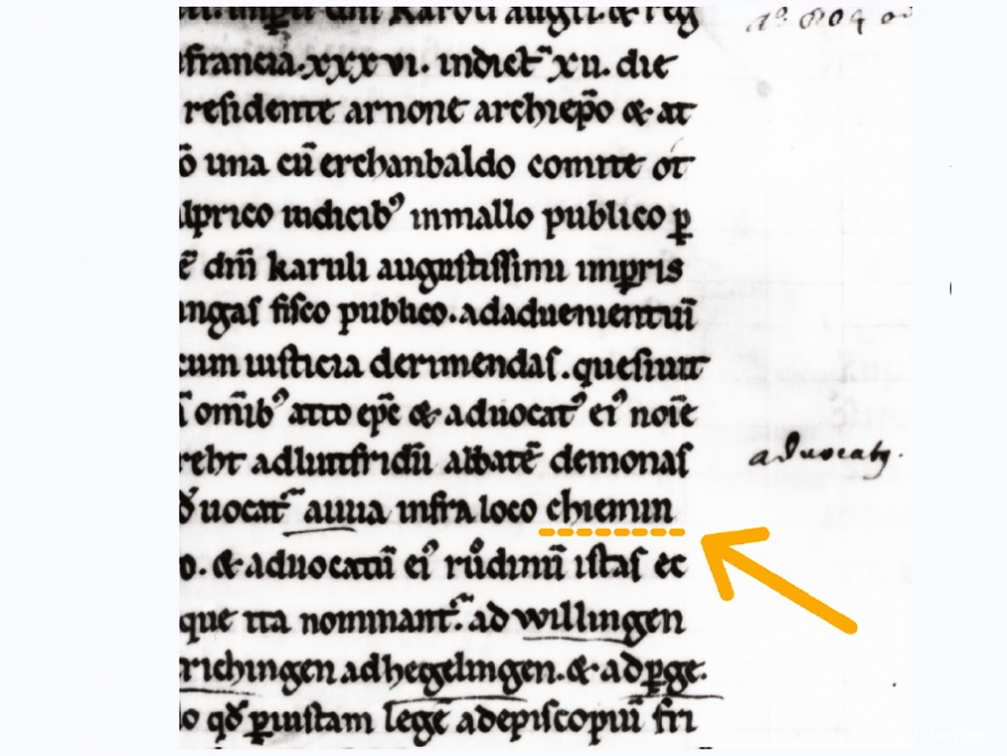 karoli augusti. & reg
a° 804
francia. xxxvi. indict̄ xii. die
residente arnone archiep̄o & at
ō una cū erchanbaldo comite ot
lprico iudicibꝰ inmallo publico ꝑ
ē dm̄i karuli augustissimi imꝑris
ngas fisco publico. adadueniencium̄
cum iusticia derimendas. quesiuit
ī om̄ibꝰ atto ep̄c & aduocatꝰ eiꝰ noīe
reht adliutfridū abbatē demonas
aduocatꝰ.
uocat̄ auua infra loco chiemin
o. & aduocatū eiꝰ růdinū istas ec
que ita nominant̄. ad willingen
richingen adhegelingen. & adꝑge.
o qđ ꝑiustam lege adepiscopiū fri